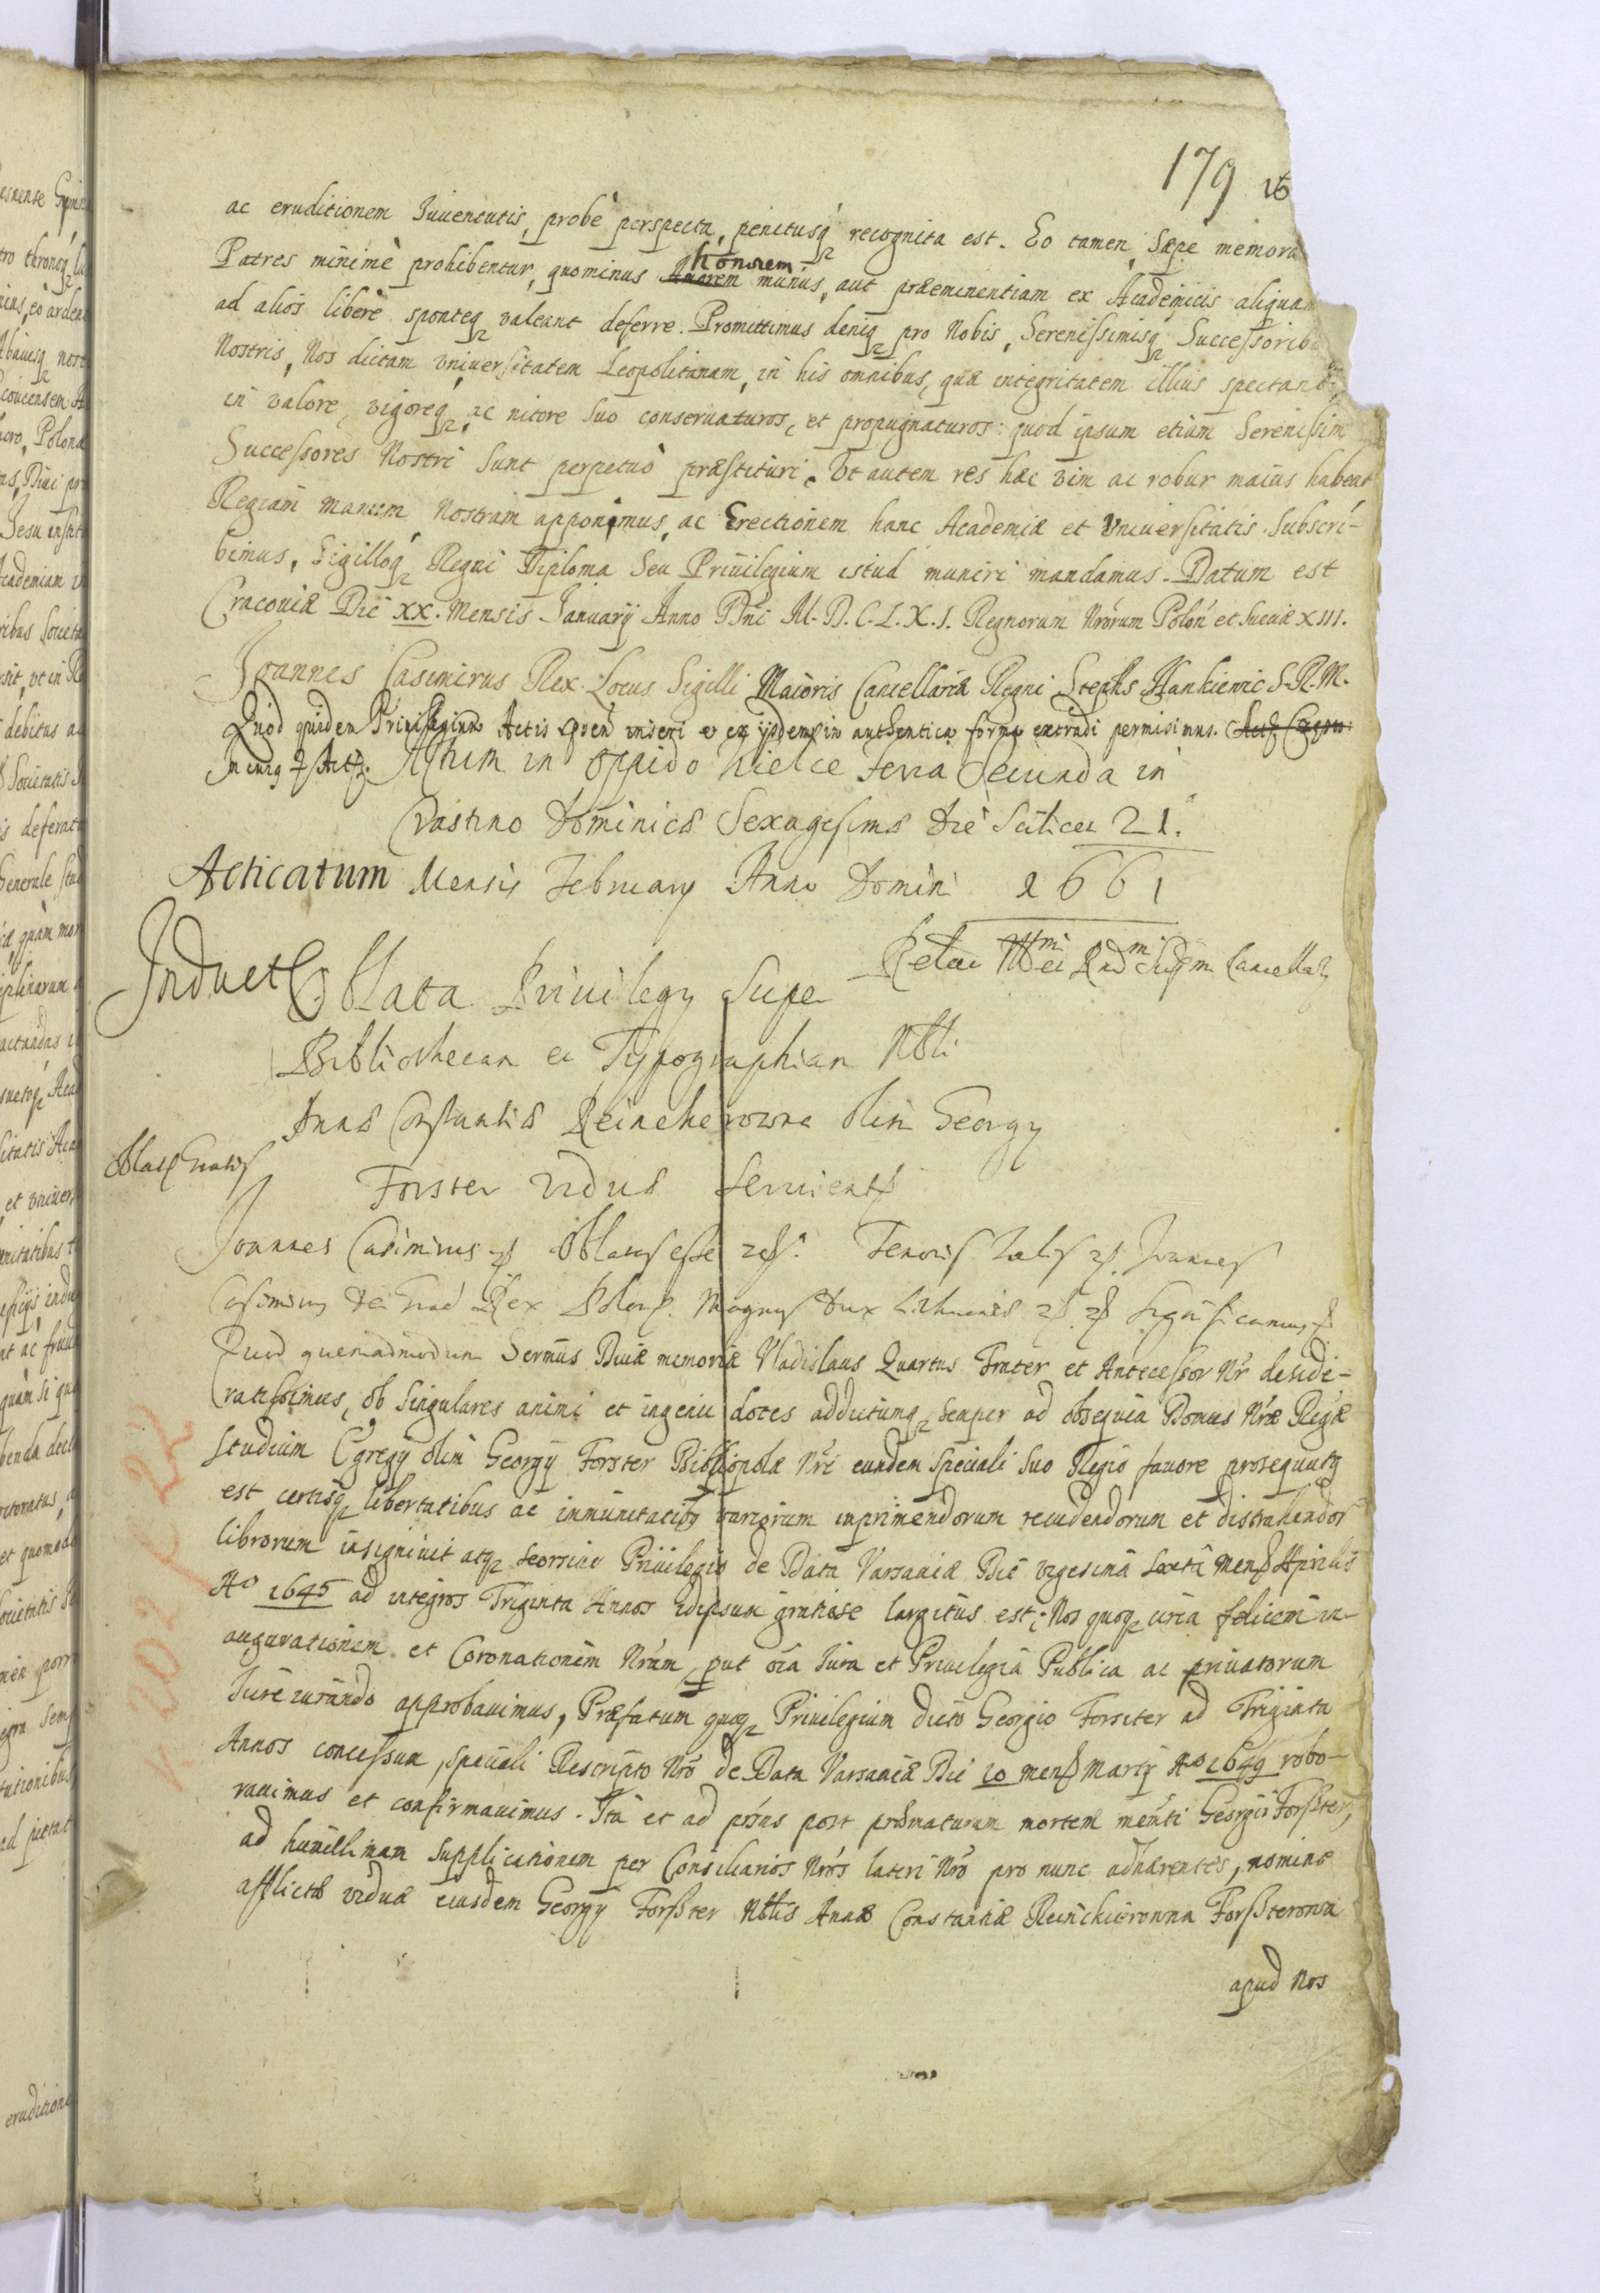 179
ac eruditionem Iuventutis, probè perspecta, penitusq́ recognita est. Eo tamen, Sæpe memora
Patres minimè prohibentur, quominus honorem munus, aut præeminentiam ex Academicis aliquam
ad alios liberè sponteq valeant deferre. Promittimus deniq pro Nobis, Serenissimisq Successorib
Nostris, Nos dictam vniuersitatem Leopolitanam, in his omnibus, quæ integritatem illius spectant
in valore, vigoreq, ac nitore suo conseruaturos, et propugnaturos: quod ipsum etiam Serenissim
Successores Nostri sunt perpetuò præstituri. Vt autem res hæc vim ac robur maius habeat
Regiam manum Nostram apponimus, ac Erectionem hanc Academiæ et Vniuersitatis Subscri-
bimus, Sigilloq́ Regni Diploma Seu Priuilegium istud muniri mandamus. Datum est
Cracouiæ Die XX. Mensis Januarij Anno Dni M.D.C.L.X.I. Regnorum Nrorum Polon et Sueciæ XIII.
Joannes Casimirus Rex. Locus Sigilli Maioris Cancellariæ Regni Stephs Hankiewic S.R.M.
Quod quidem Priuilegium Actis inseri et ex ijsdem in authentica forma extradi permisimus.
In cuius Actum in Oppido Kielce Feria Secunda in
Crastino Dominicæ Sexagesimæ Die Scilicet 21.
Acticatum Mensis February Anno Domini 1661
Cancella
Induct Oblata Priuilegy Super
Bibliothecam et Typographiam Nbli
Annæ Constantiæ Reinekerowna olim Georgy
Oblat Gratis
Forster viduæ seruient
Joannes Casimirus Oblatas esse Tenoris talis Joannes
Casimirus Dei Grad Rex Polon. Magnus Dux Lithuaniæ Significamus
Quod quemadmodum Sermus Diuæ memoriæ Vladislaus Quartus Frater et Antecessor Nr deside-
ratissimus, ob Singulares animi et ingenii dotes addictumq Semper ad obsequia Domus Nræ Regiæ
Studium Egregy olim Georgij Forster Bibliopolæ Nri eundem Speciali Suo Regio fauore prosequutq
est certisq libertatibus ac immunitatibq variorum inprimendorum recudendorum et distrahendor
librorum insigniuit atq seorsiuo Priuilegio de Data Varsauiæ Die vigesima Sexta Mens Aprilis
Ao 1645 ad integros Triginta Annos idipsum gratiose largitus est; Nos quoq circa felicem in-
augurationem et Coronationem Nram, put oia Iura et Priuilegia Publica ac priuatorum
Iure iurando approbauimus, Præfatum quoq Priuilegium dicto Georgio Forster ad Triginta
Annos concessum, Speciali Rescripto Nro de Data Varsauiæ Die 10 mens Martij Ao 1649 robo-
rauimus et confirmauimus. Ità et ad præns post præmaturam mortem menti Georgii Forster,
ad humillimam Supplicationem per Consiliarios Nros lateri Nro pro nunc adhærentes, nomine
afflictæ viduæ eiusdem Georgy Forster Nblis Annæ Constantiæ Reinckierowna Forszterowa
apud Nos